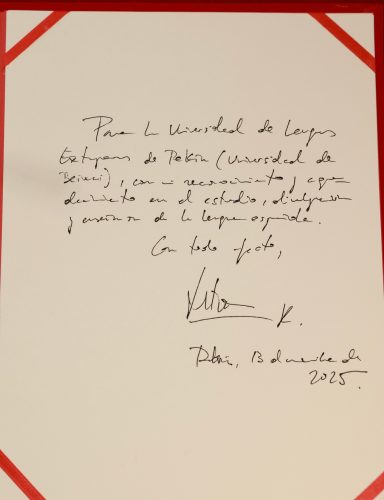 Para la Universidad de Lenguas
Extranjeras de Pekín (Universidad de
Beiwai), con mi reconocimiento y agra-
decimiento en el estudio, divulgación
y enseñanza de la lengua española.
Con todo afecto,
R.
Pekín, 13 de noviembre de
2025.